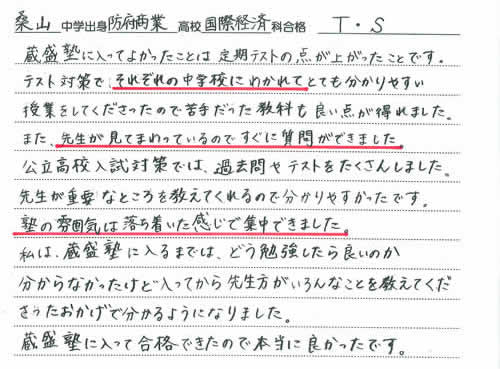 桑山 中学出身 防府商業 高校 国際経済 科合格 T・S
蔵盛塾に入ってよかったことは定期テストの点が上がったことです。
テスト対策で、それぞれの中学校にわかれてとても分かりやすい
授業をしてくださったので苦手だった教科も良い点が得れました。
また、先生が見てまわっているのですぐに質問ができました。
公立高校入試対策では、過去問やテストをたくさんしました。
先生が重要なところを教えてくれるので分かりやすかったです。
塾の雰囲気は落ち着いた感じで集中できました。
私は、蔵盛塾に入るまでは、どう勉強したら良いのか
分からなかったけど入ってから先生方がいろんなことを教えてくだ
さったおかげで分かるようになりました。
蔵盛塾に入って合格できたので本当に良かったです。